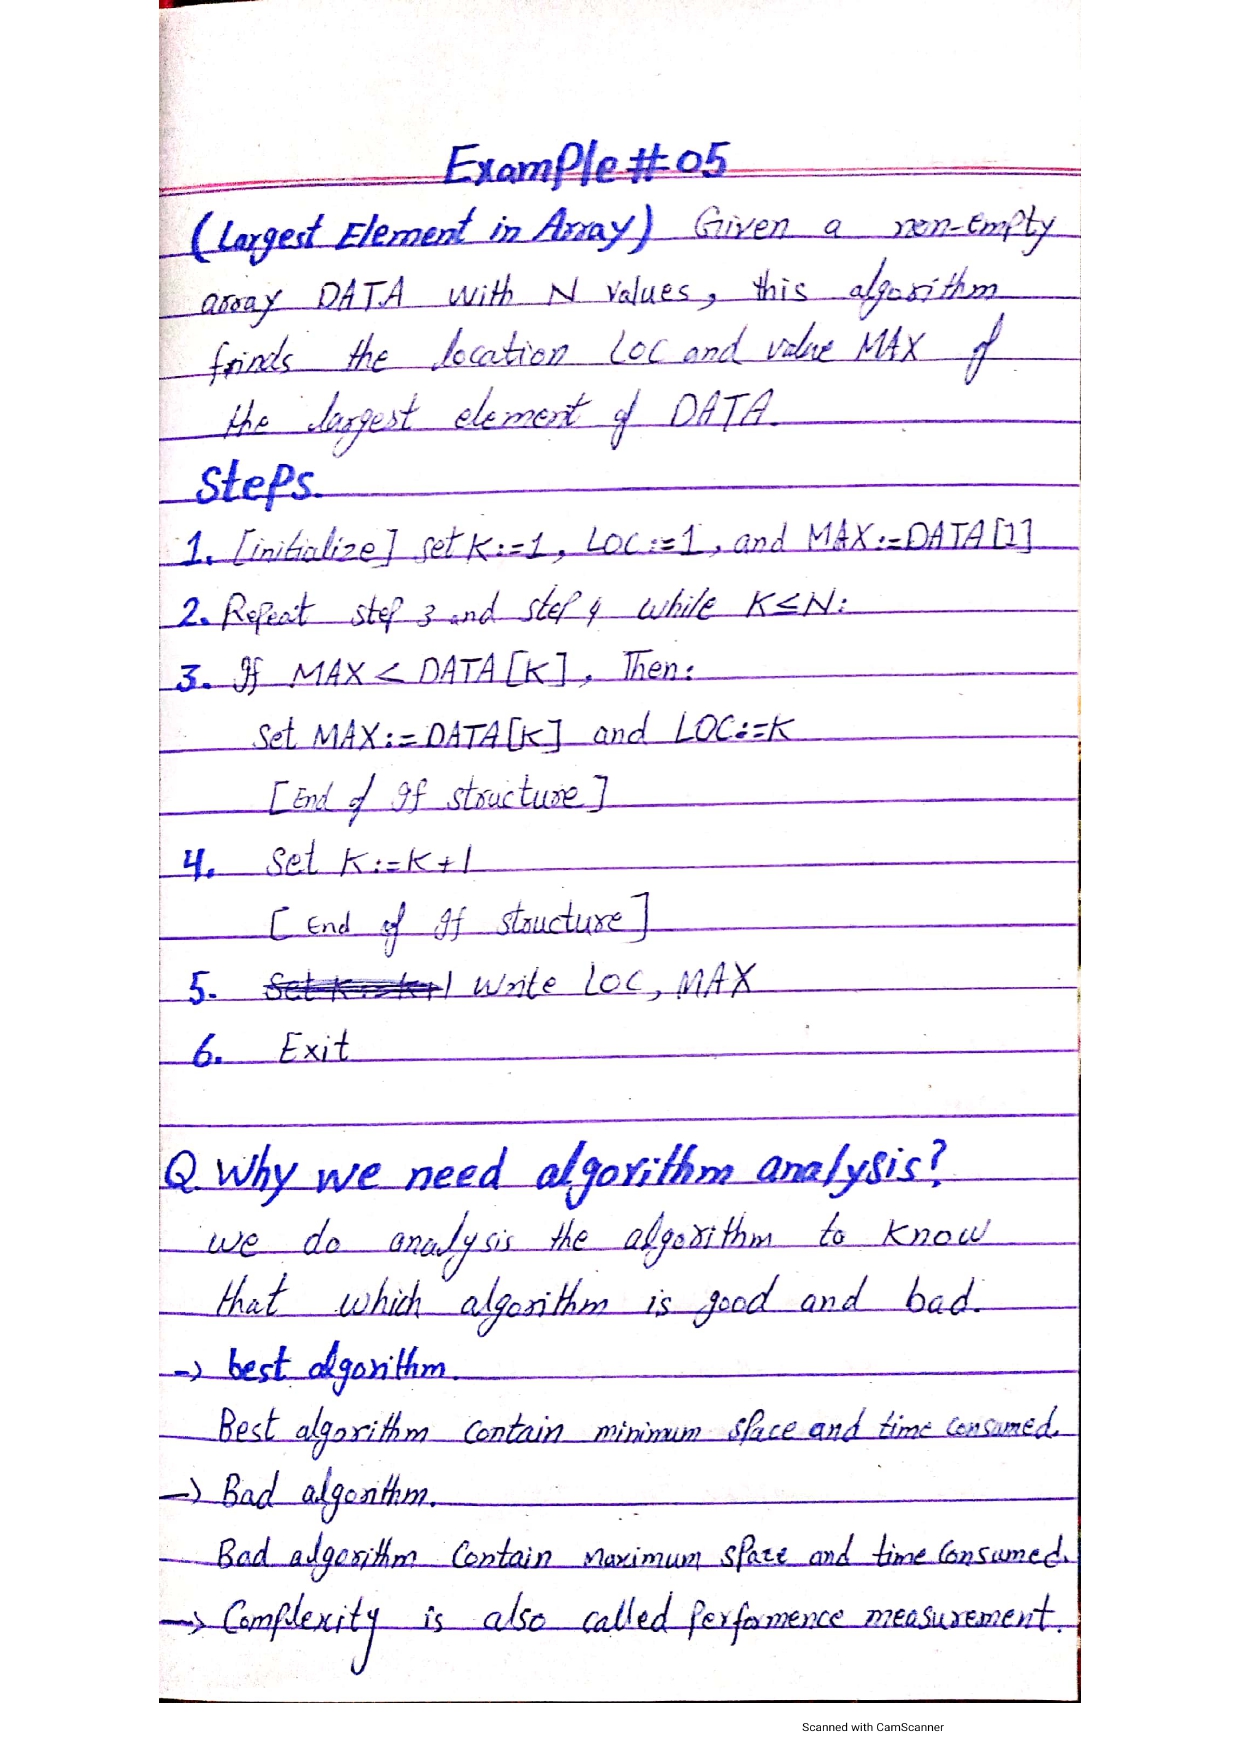 Example # 05
(Largest Element in Array) Given a non-empty
array DATA with N values, this algorithm
finds the location LOC and value MAX of
the largest element of DATA.
Steps.
1. [initialize] set K:=1, LOC:=1, and MAX:=DATA[1]
2. Repeat step 3 and step 4 while K≤N:
3. If MAX < DATA[K], Then:
Set MAX:=DATA[K] and LOC:=K
[End of If structure]
4. Set K:=K+1
[End of If structure]
5. Write LOC, MAX
6. Exit
Q. Why we need algorithm analysis?
we do analysis the algorithm to know
that which algorithm is good and bad.
-> best algorithm.
Best algorithm contain minimum space and time consumed.
-> Bad algorithm.
Bad algorithm Contain maximum space and time Consumed.
-> Complexity is also called performence measurement.
Scanned with CamScanner